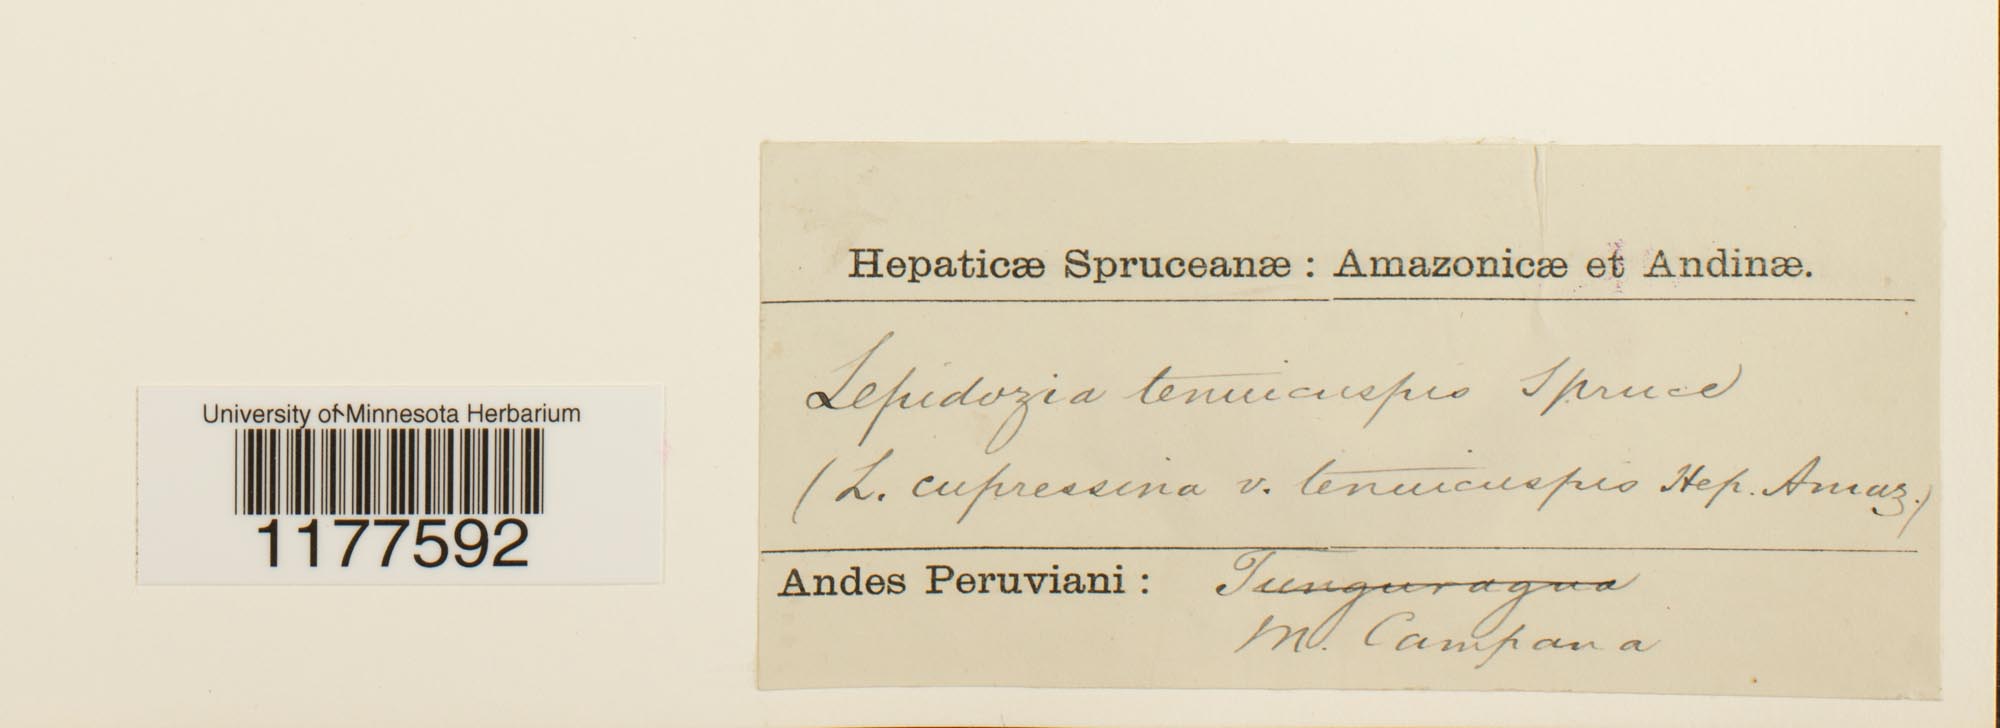 University of Minnesota Herbarium
1177592
Hepaticæ Spruceanæ : Amazonicæ et Andinæ.
Lepidozia tenuicuspis Spruce
(L. cupressina v. tenuicuspis Hep. Amaz.)
Andes Peruviani : Tunguragua
M. Campana